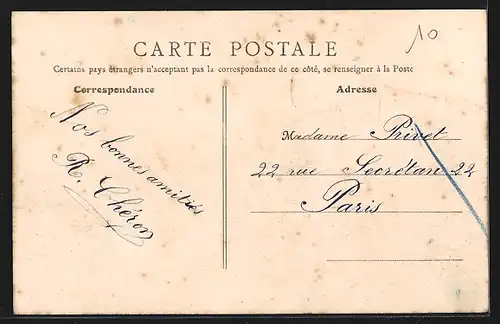 10
CARTE POSTALE
Certains pays étrangers n'acceptant pas la correspondance de ce côté, se renseigner à la Poste
Correspondance
Nos bonnes amitiés
R. Chéron
Adresse
Madame Privet
22 rue Secrétan 22
Paris